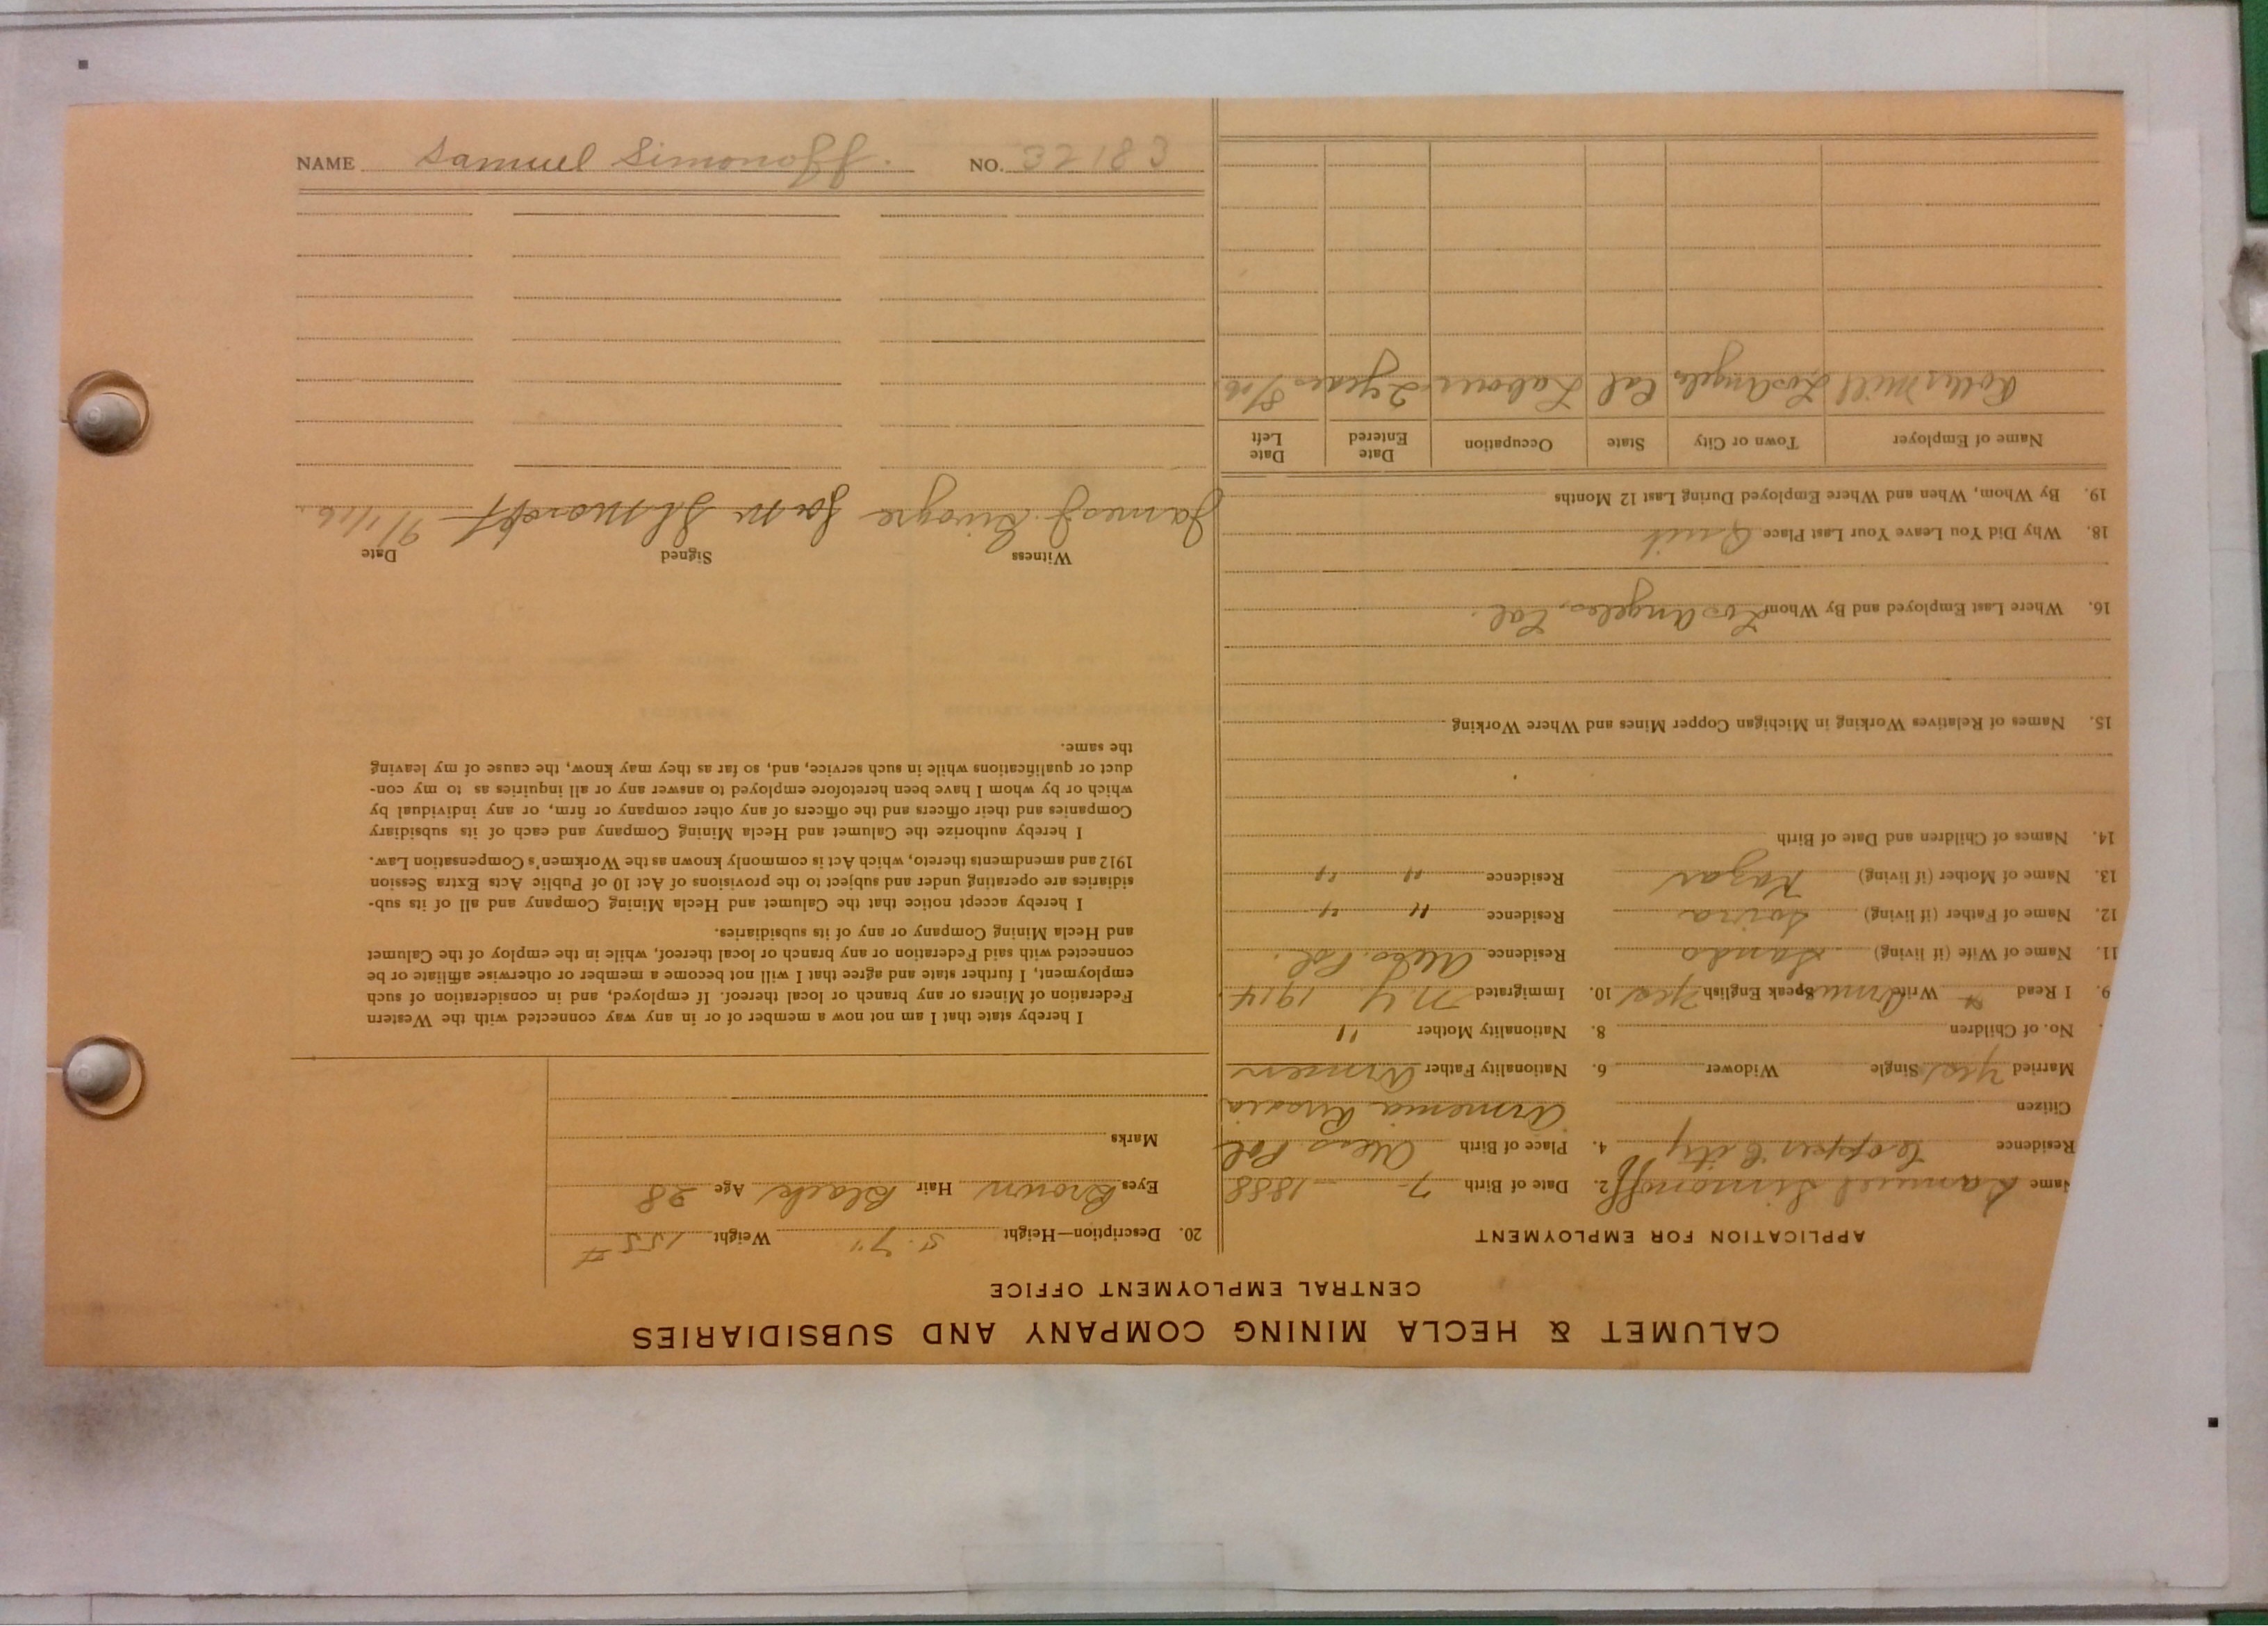 NAME Samuel Simonoff. NO. 32183
CALUMET & HECLA MINING COMPANY AND SUBSIDIARIES
CENTRAL EMPLOYMENT OFFICE
APPLICATION FOR EMPLOYMENT
Name Samuel Simonoff 2. Date of Birth 7 - 1888
Residence Copper City 4. Place of Birth Pol
Citizen Armenia Russia
Married Yes Single Widower 6. Nationality Father Armen
No. of Children 8. Nationality Mother "
9. I Read Write Speak English Yes 10. Immigrated N Y 1914
11. Name of Wife (if living) Residence Pol.
12. Name of Father (if living) Residence " "
13. Name of Mother (if living) Kazar Residence " "
14. Names of Children and Date of Birth
15. Names of Relatives Working in Michigan Copper Mines and Where Working
16. Where Last Employed and By Whom Los Angeles, Cal.
18. Why Did You Leave Your Last Place Quit
19. By Whom, When and Where Employed During Last 12 Months
Name of Employer Town or City State Occupation Date Entered Date Left
Mill Los Angeles Cal Laborer 2 years 8/16
20. Description—Height 5' 7" Weight 155 #
Eyes Brown Hair Black Age 28
Marks
I hereby state that I am not now a member of or in any way connected with the Western
Federation of Miners or any branch or local thereof. If employed, and in consideration of such
employment, I further state and agree that I will not become a member or otherwise affiliate or be
connected with said Federation or any branch or local thereof, while in the employ of the Calumet
and Hecla Mining Company or any of its subsidiaries.
I hereby accept notice that the Calumet and Hecla Mining Company and all of its sub-
sidiaries are operating under and subject to the provisions of Act 10 of Public Acts Extra Session
1912 and amendments thereto, which Act is commonly known as the Workmen's Compensation Law.
I hereby authorize the Calumet and Hecla Mining Company and each of its subsidiary
Companies and their officers and the officers of any other company or firm, or any individual by
which or by whom I have been heretofore employed to answer any or all inquiries as to my con-
duct or qualifications while in such service, and, so far as they may know, the cause of my leaving
the same.
Witness Signed Date
James J. 9/1/16.